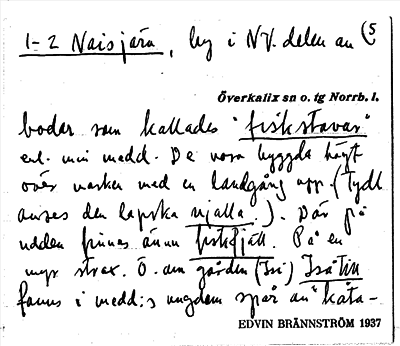 1-2 Naisjärv, by i NV. delen av (5
Överkalix sn o. tg Norrb. l.
bodar som kallades "fiskstavar"
enl. min medd. De voro byggda högt
över marken med en landgång upp. (tydl.
avses den lapska njalla.). Där på
udden finnes ännu fiskfjäll. På en
myr strax. Ö. om gården (Isi) Isätill
fanns i medd:s ungdom spår av "kåta-
EDVIN BRÄNNSTRÖM 1937